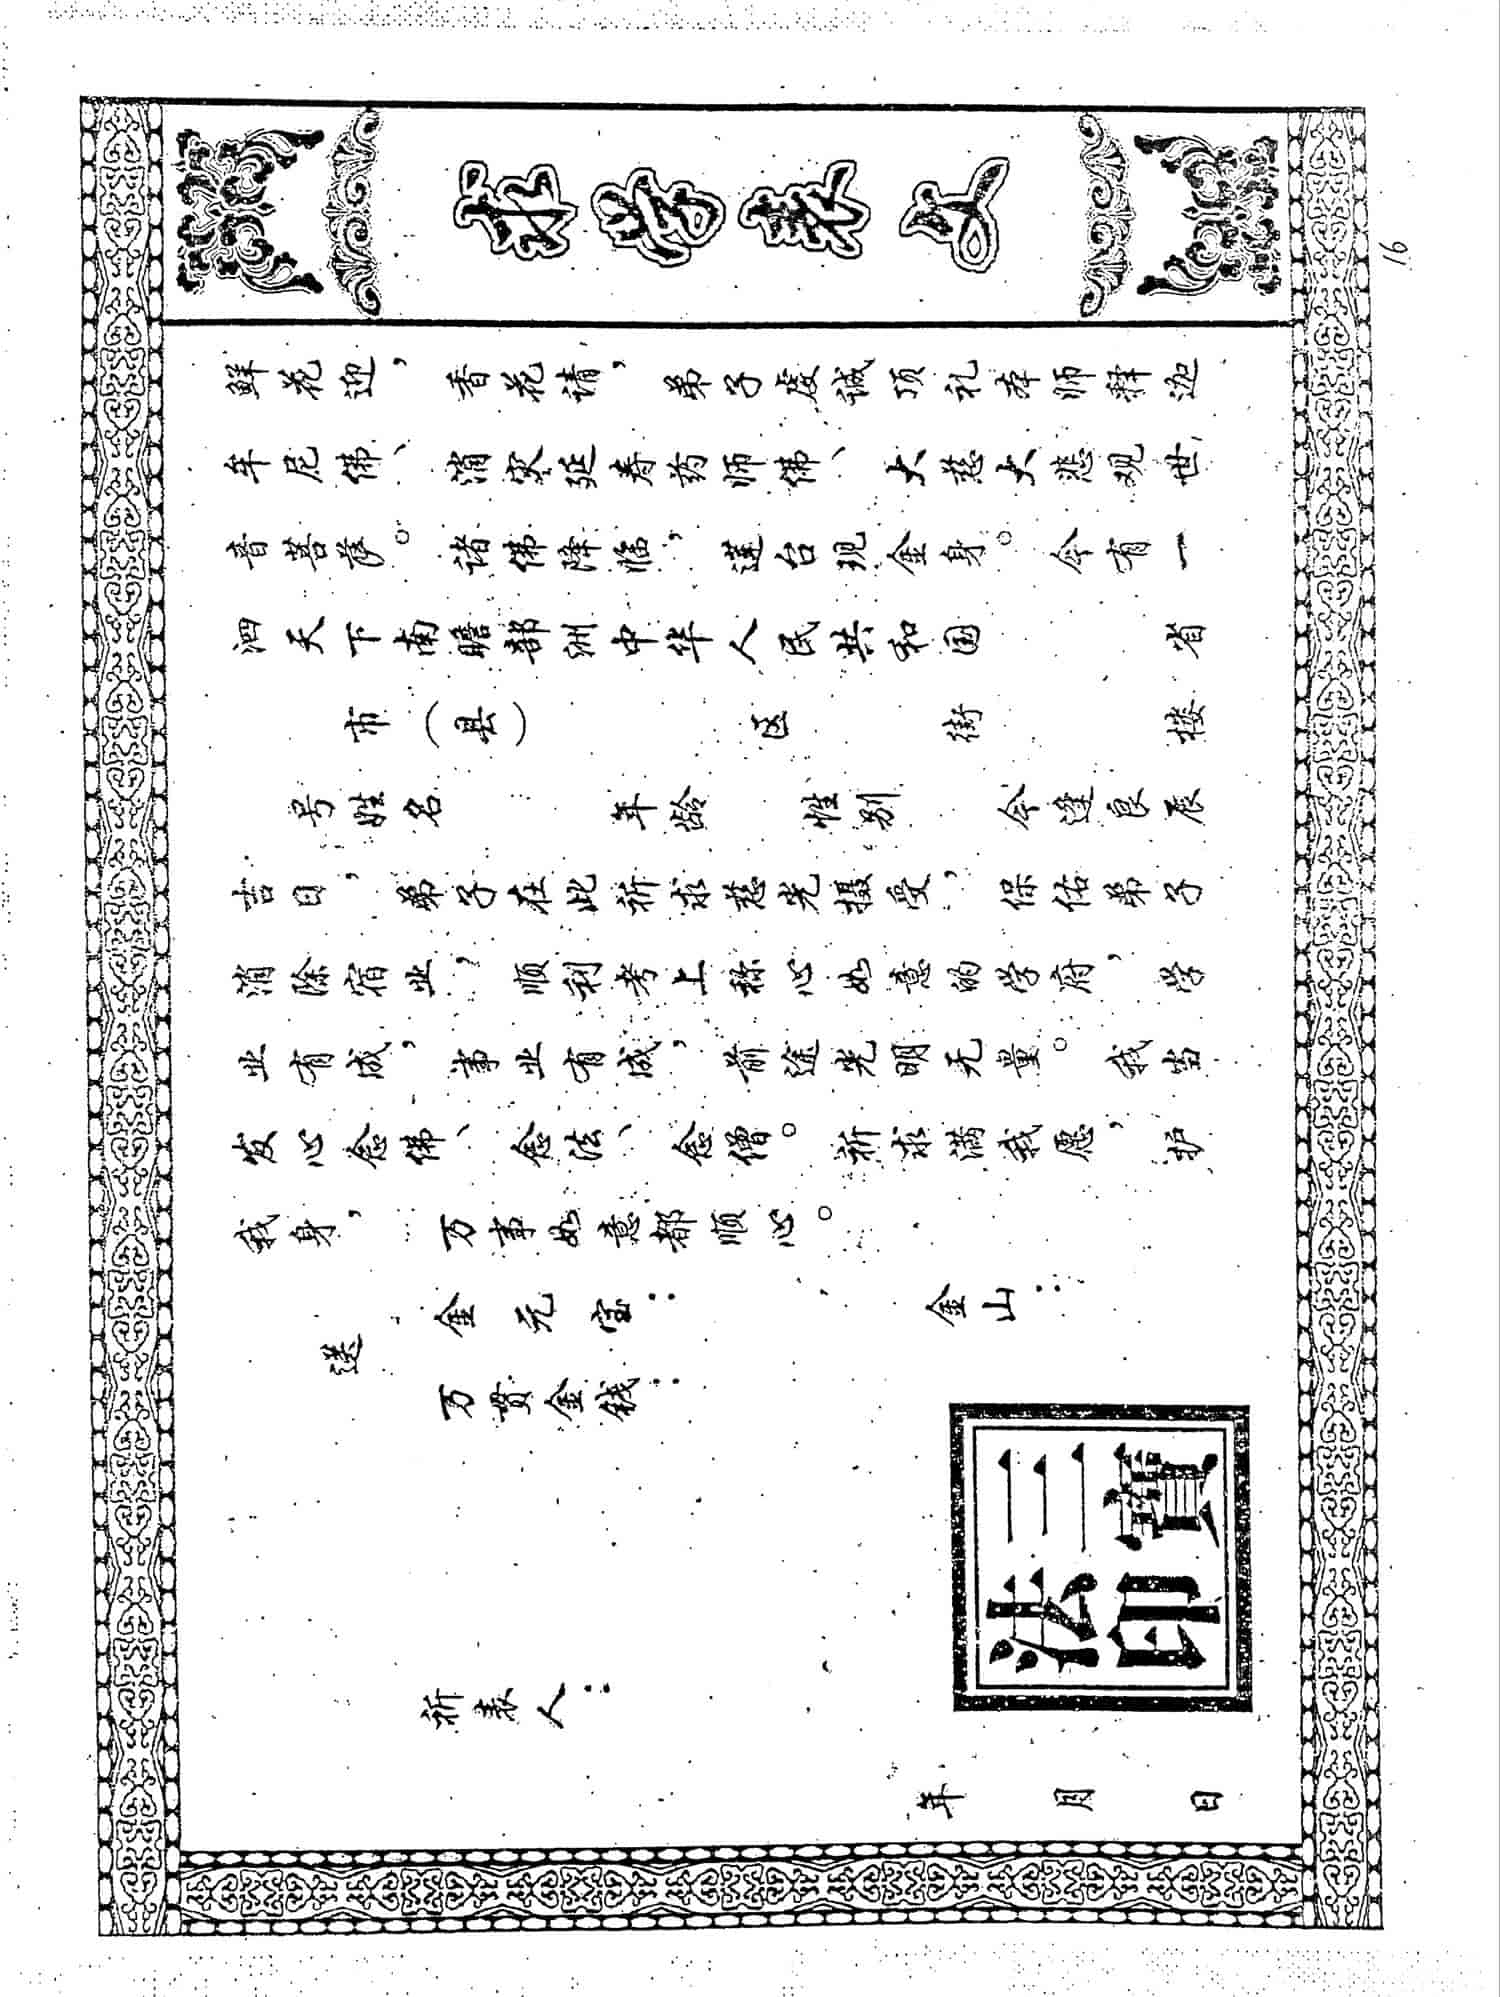 求学表文
鲜花迎，香花请，弟子虔诚顶礼本师释迦
牟尼佛、消灾延寿药师佛、大慈大悲观世
音菩萨。诸佛降临，莲台现金身。今有一
泗天下南瞻部洲中华人民共和国 省
市（县） 区 街 楼
号姓名 年龄 性别 今逢良辰
吉日，弟子在此祈求慈光摄受，保佑弟子
消除宿业，顺利考上称心如意的学府，学
业有成，事业有成，前途光明无量。我当
发心念佛、念法、念僧。祈求满我愿，护
我身，万事如意都顺心。
送 金元宝： 金山：
万贯金钱：
三寶法印
祈表人：
年 月 日
16